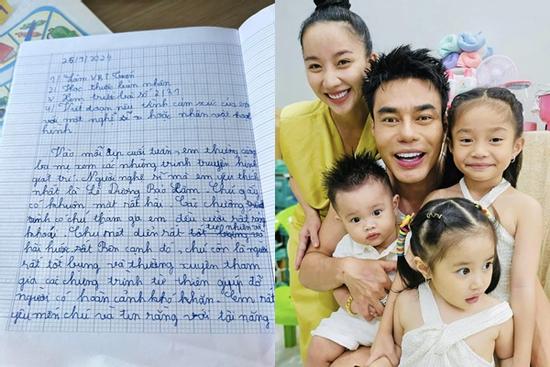 25/9/2024
1/ Làm VBT Toán
2/ Học thuộc
V. Xem trước bài số 21, 22
4/ Viết đoạn nêu tình cảm xúc của em
với một nghệ sĩ hoặc nhân vật hoạt
hình
Vào mỗi dịp cuối tuần, em thường cùng
ba mẹ xem các chương trình truyền hình
giải trí. Người nghệ sĩ mà em yêu thích
nhất là Lê Dương Bảo Lâm. Chú ấy
có khuôn mặt rất hài. Các chương trình
có chú tham gia em đều cười rất sảng
khoái. Chú một diễn rất tốt tự nhiên và
hài hước rất Bên cạnh đó, chú còn là người
rất tốt bụng và thường xuyên tham
gia các chương trình từ thiện giúp đỡ
người có hoàn cảnh khó khăn. Em rất
yêu mến chú và tin rằng với tài năng